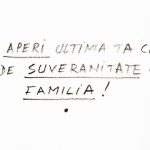 APERI ULTIMA TA
DE SUVERANITATE
FAMILIA!